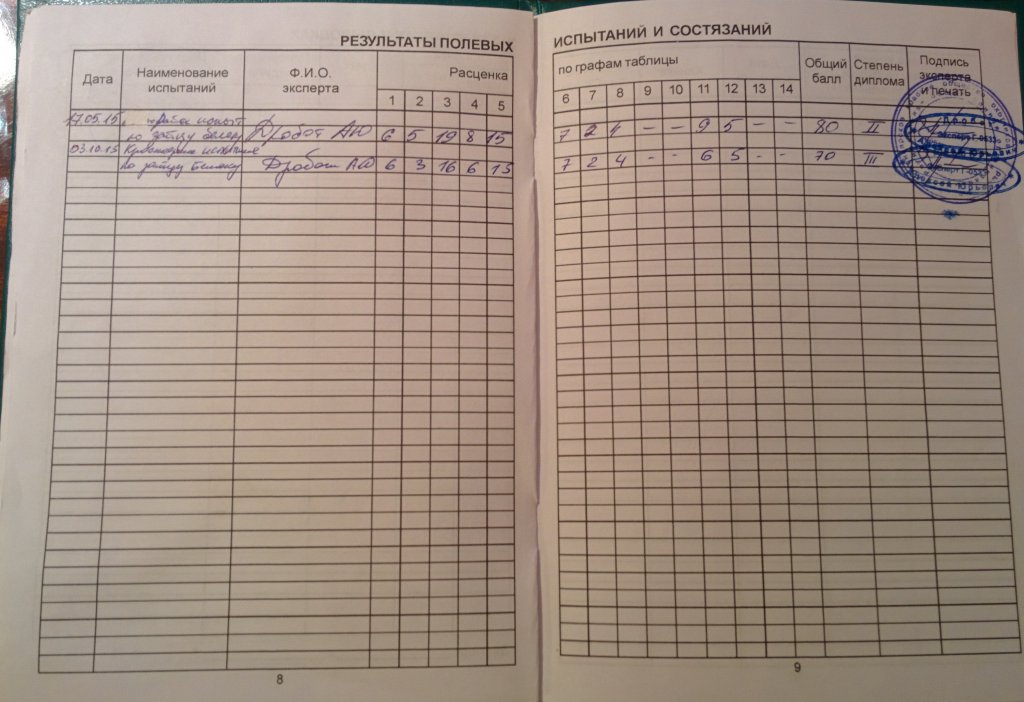 РЕЗУЛЬТАТЫ ПОЛЕВЫХ ИСПЫТАНИЙ И СОСТЯЗАНИЙ
Дата Наименование испытаний Ф.И.О. эксперта Расценка по графам таблицы Общий балл Степень диплома Подпись эксперта и печать
1 2 3 4 5 6 7 8 9 10 11 12 13 14
17.05.15
по зайцу Дробот АЮ 6 5 19 8 15 7 2 4 - - 9 5 - - 80 II
03.10.15
по зайцу беляку Дробот АЮ 6 3 16 6 15 7 2 4 - - 6 5 - - 70 III
8
9